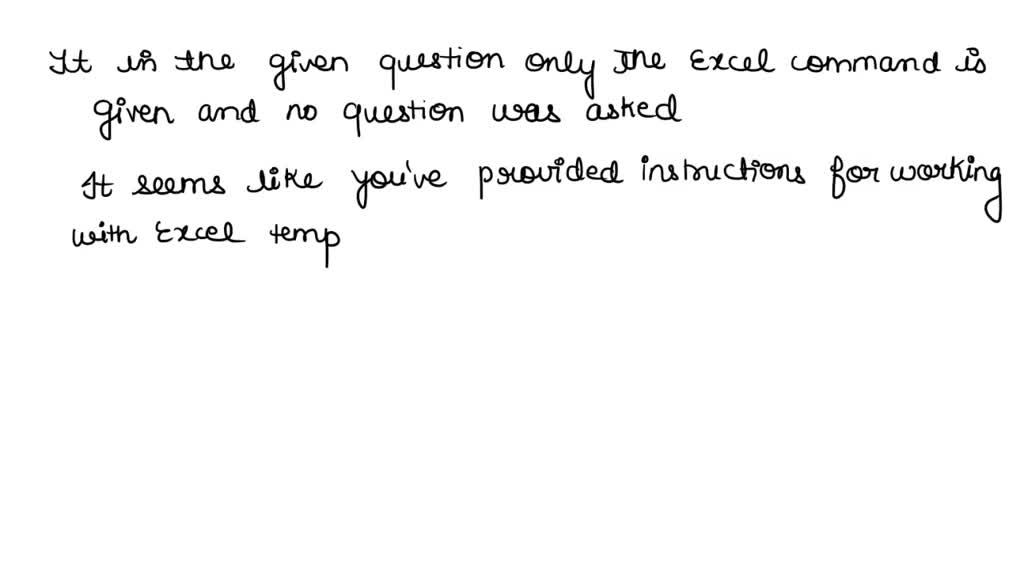 It in the given question only The Excel command is
given and no question was asked
It seems like you've provided instructions for working
with Excel temp